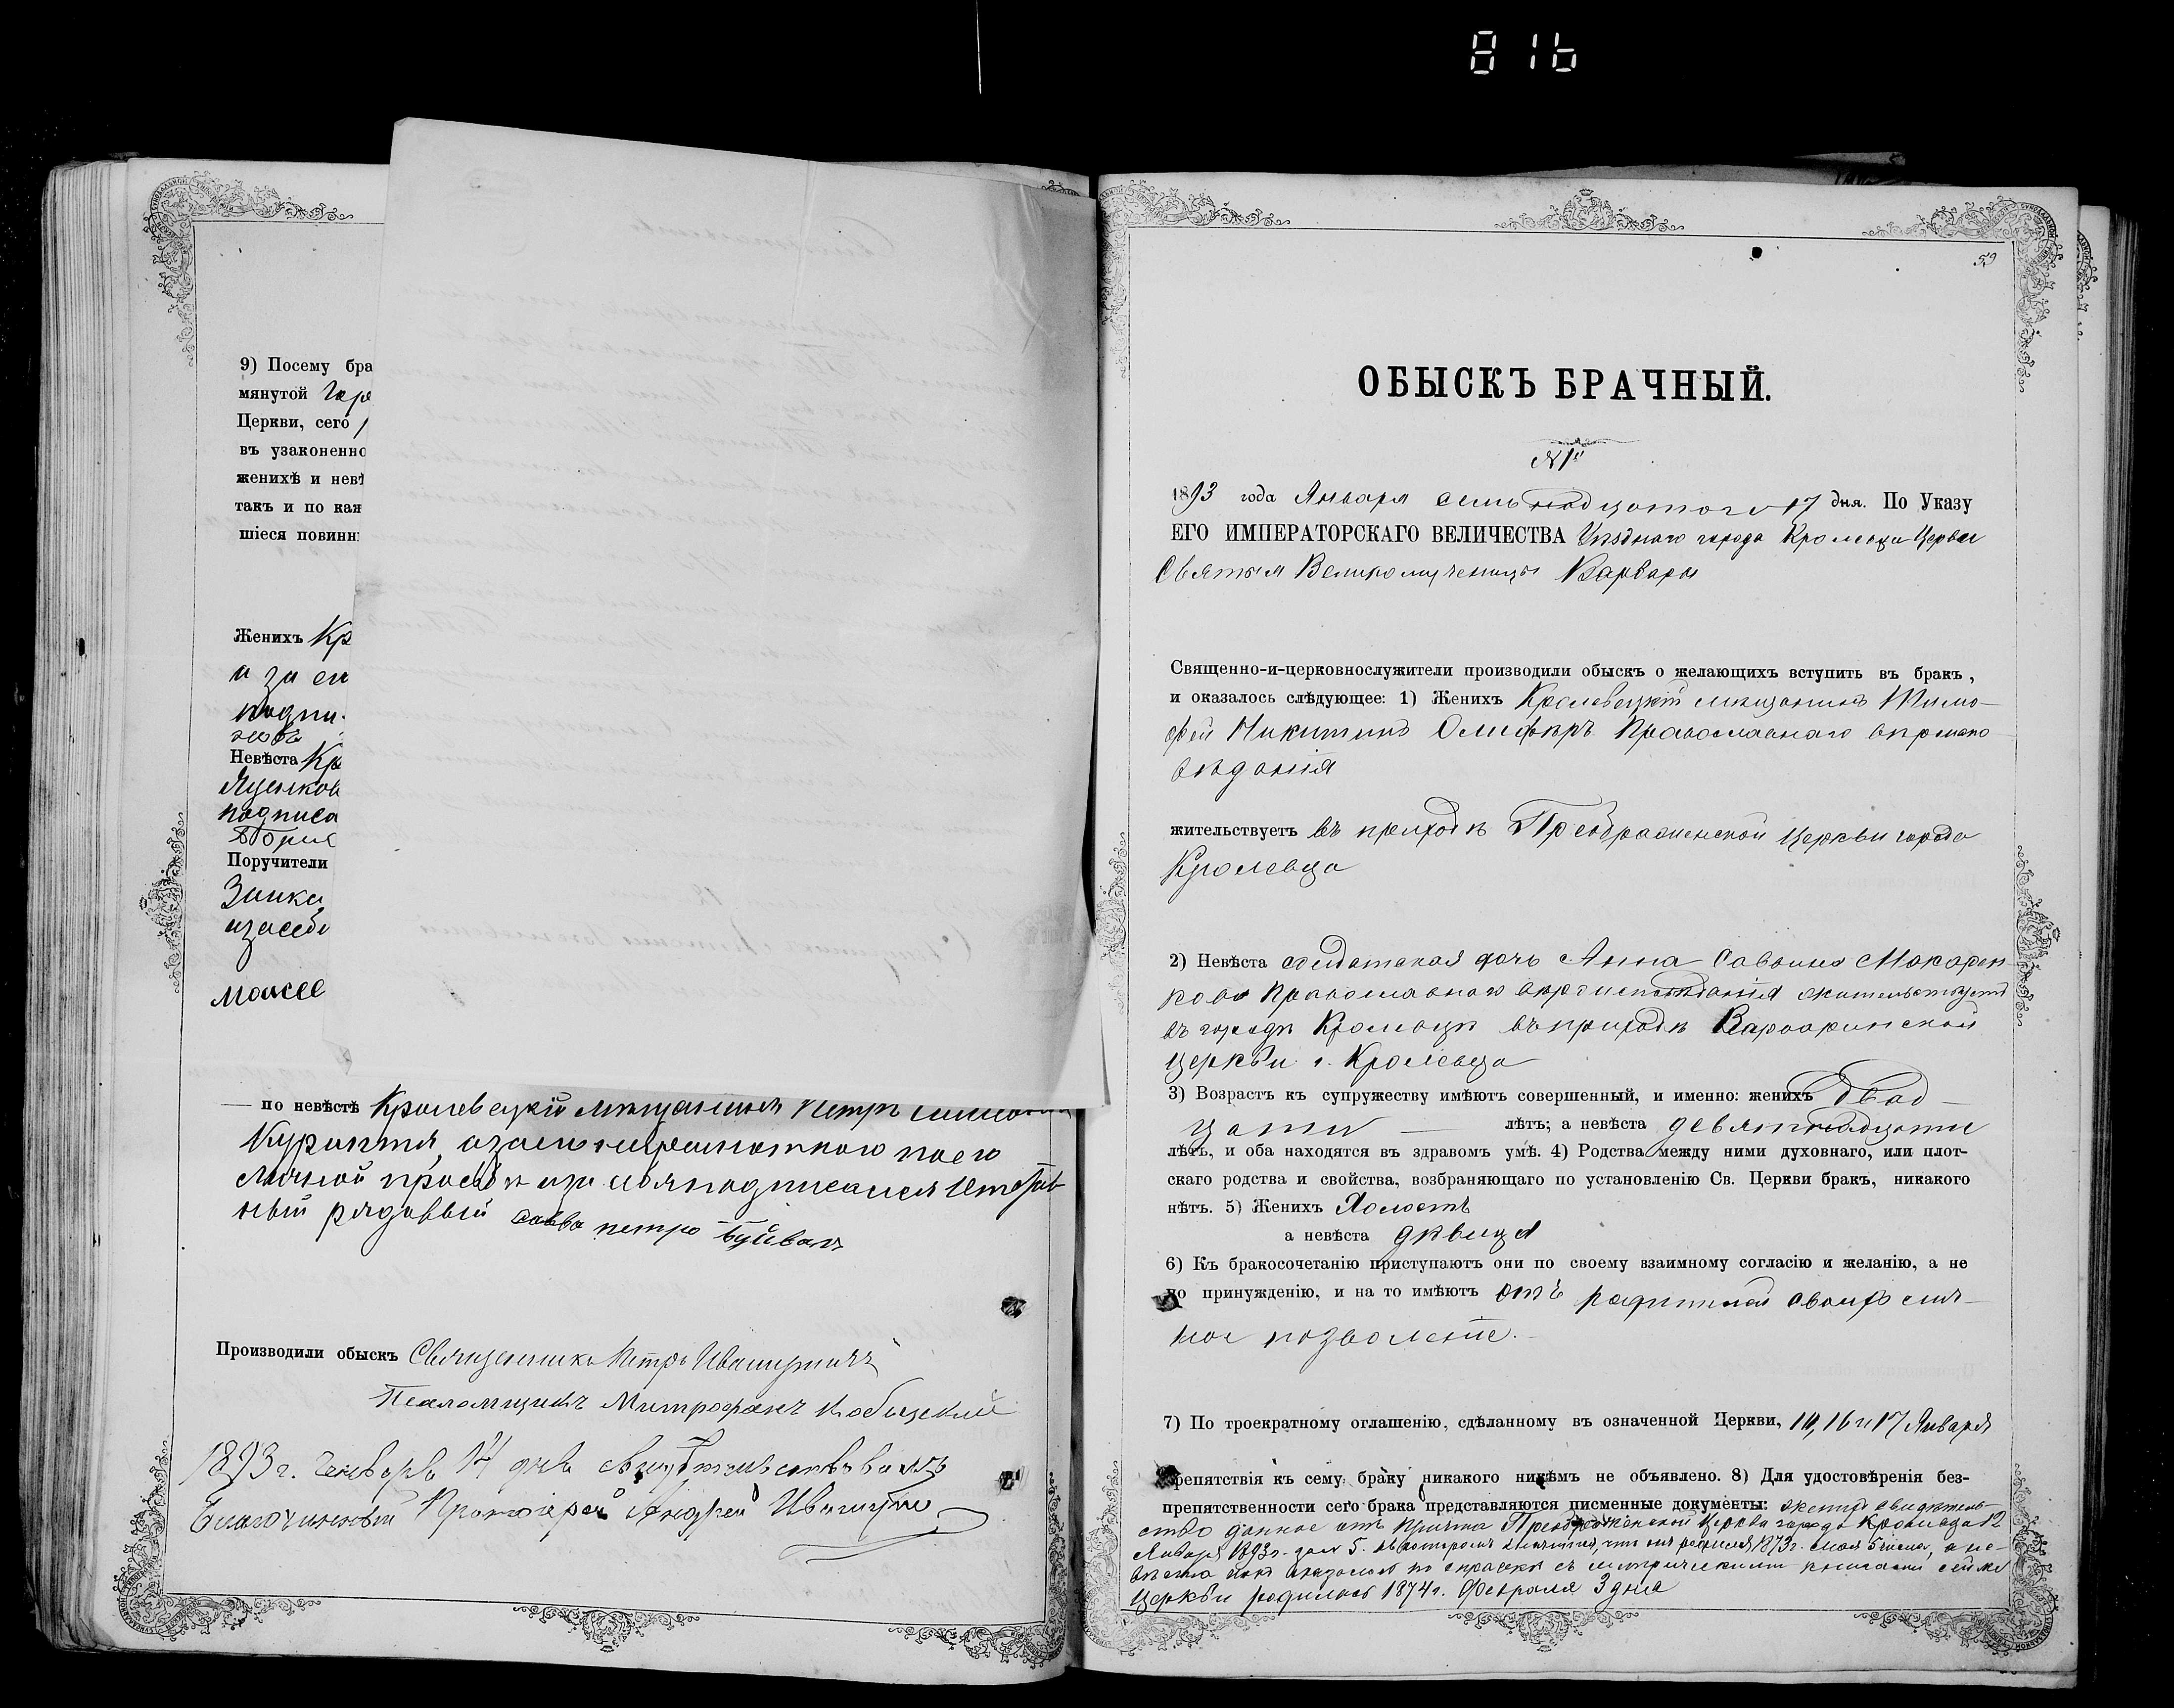 816
9) Посему бра
мянутой Гор
Церкви, сего
въ узаконенно
женихѣ и невѣ
такъ и по каж
шіеся повинн
Женихъ Кр
а за ей
подпи
Невѣста Кр
Яценков
подписа
Поручители
Заика
Моисее
по невѣстѣ Кролевецкій мѣщанинъ Петръ
личной просьбѣ и за себя подписался
ный рядовый Савва петро Буйвалъ
Производили обыскъ Священникъ Петръ Иваницкій
Псаломщикъ Митрофанъ
1893 г. Января 14 дня свидѣтельствовалъ
Благочинный Протоіерей Андрей
59
ОБЫСКЪ БРАЧНЫЙ.
№ 1й
1893 года Января семьнадцатого 17 дня. По Указу
ЕГО ИМПЕРАТОРСКАГО ВЕЛИЧЕСТВА Уѣзднаго города Кролевца Церкви
Святыя Великомученицы Варвары
Священно-и-церковнослужители производили обыскъ о желающихъ вступить въ бракъ,
и оказалось слѣдующее: 1) Женихъ Кролевецкій мѣщанинъ Тимо-
фей Никитинъ Олиферъ Православнаго вѣроиспо
вѣданія
жительствуетъ въ приходѣ Преображенской Церкви города
Кролевца
2) Невѣста солдатская дочь Анна Саввина Макарен
кова Православнаго вѣроисповѣданія жительствуетъ
въ городѣ Кролевцѣ въ приходѣ Варваринской
церкви г. Кролевца
3) Возрастъ къ супружеству имѣютъ совершенный, и именно: женихъ двад-
цати лѣтъ; а невѣста девятнадцати
лѣтъ, и оба находятся въ здравомъ умѣ. 4) Родства между ними духовнаго, или плот-
скаго родства и свойства, возбраняющаго по установленію Св. Церкви бракъ, никакого
нѣтъ. 5) Женихъ Холостъ
а невѣста дѣвица
6) Къ бракосочетанію приступаютъ они по своему взаимному согласію и желанію, а не
по принужденію, и на то имѣютъ отъ родителей своихъ слич-
ное позволеніе.
7) По троекратному оглашенію, сдѣланному въ означенной Церкви, 10, 16 и 17 Января
препятствія къ сему браку никакого никѣмъ не объявлено. 8) Для удостовѣренія без-
препятственности сего брака представляются писменные документы: женихъ свидѣтель-
ство данное отъ Причта Преображенской Церкви города Кролевца 12
Января 1893 г. за № 5. въ которомъ значится, что онъ родился 1873 г. мая числа, а не-
вѣста по справкѣ съ метрическими книгами сей же
Церкви родилась 1874 г. Февраля 3 дня